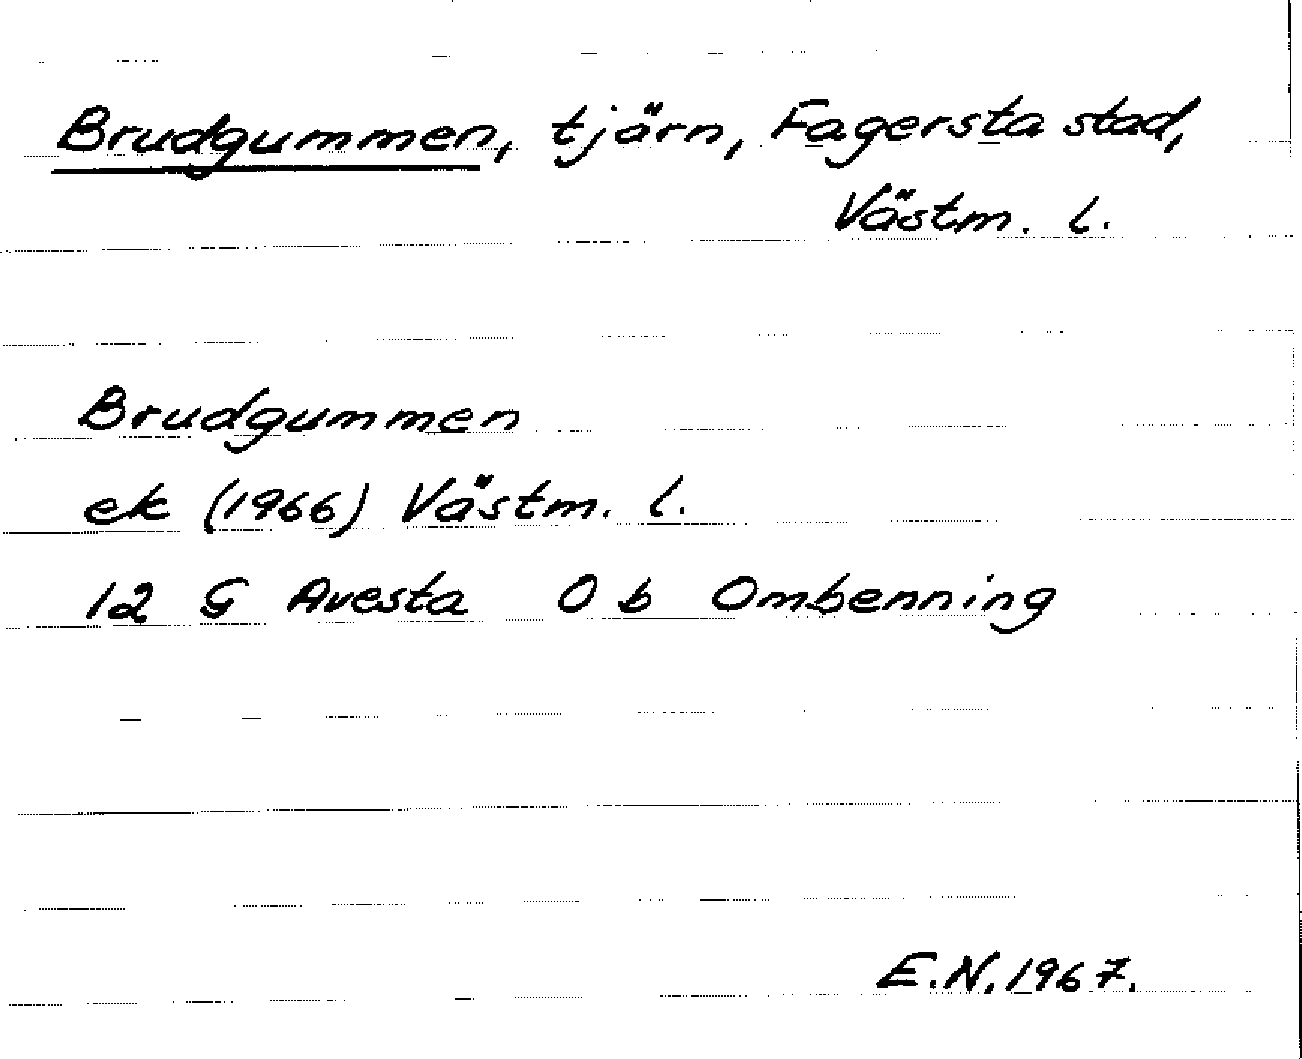 Brudgummen, tjärn, Fagersta stad,
Västm. l.
Brudgummen
ek (1966) Västm. l.
12 G Avesta O b Ombenning
E.N. 1967.